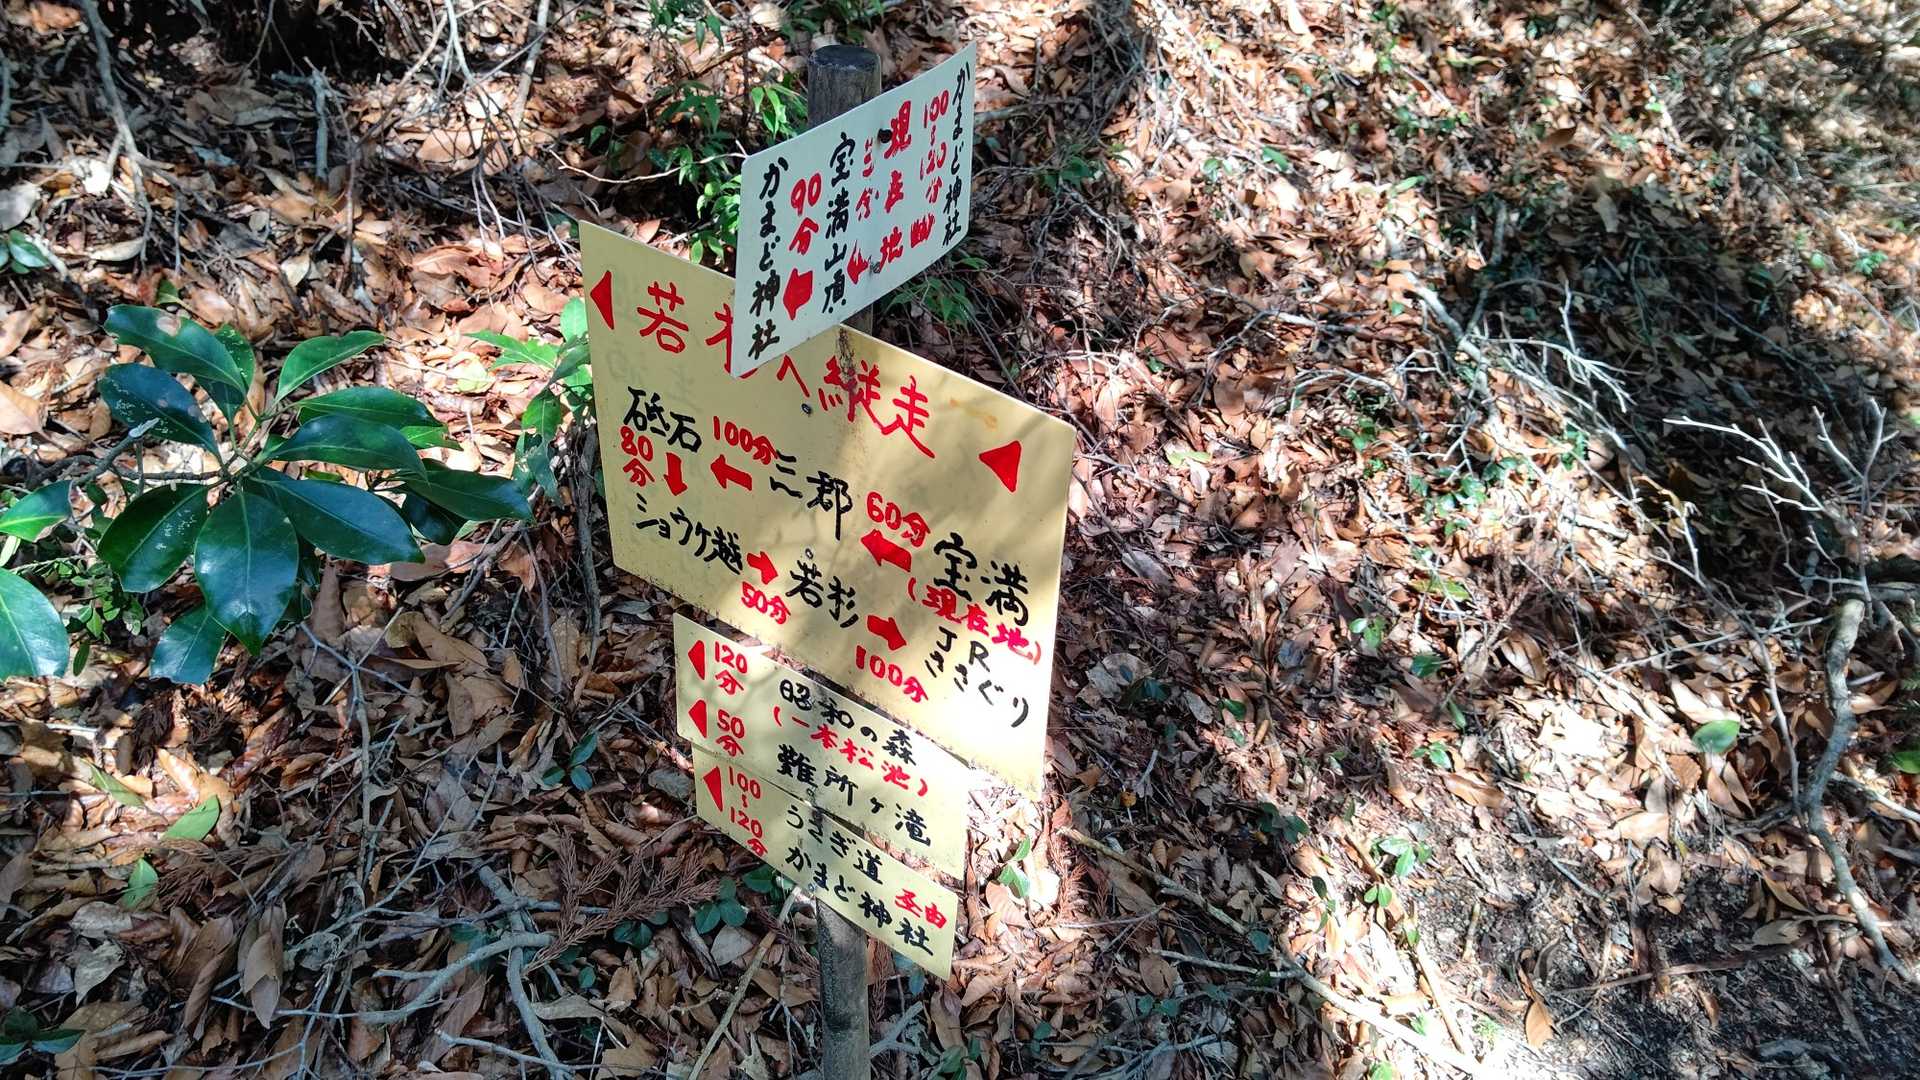 かまど神社
100〜120分
現在地
三分
宝満山頂
90分
かまど神社
若杉へ縦走
砥石
100分
三郡
60分
宝満
(現在地)
80分
ショウケ越
50分
若杉
100分
JR
ささぐり
120分
昭和の森
(一本松池)
50分
難所ヶ滝
100〜120分
うさぎ道 圣由
かまど神社